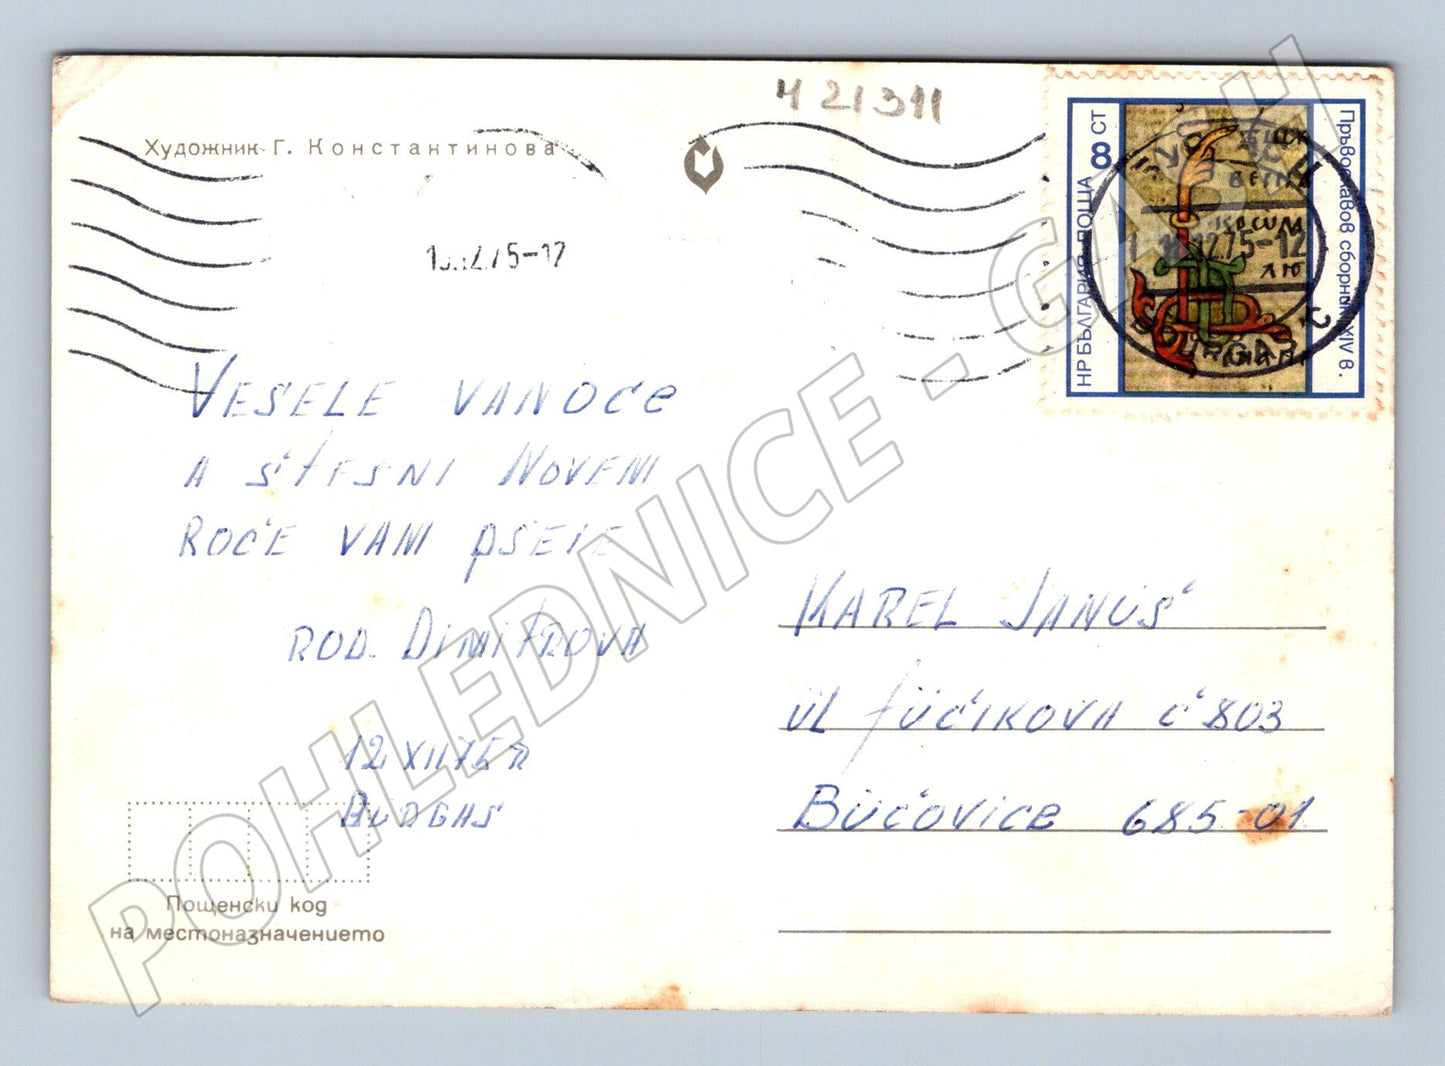 Художник Г. Константинова
Ч 21311
НР БЪЛГАРИЯ ПОЩА 8 СТ
Пръвославов сборник XIV в.
12.75-12
12.75-12
BOURGAS
VESELE VANOCE
A ŠTESNI NOVENI
ROČE VAM PŠEIE
ROD. DIMITROVA
12 XII 75 г
BURGAS
KAREL JANUŠ
UL FÜČIKOVA Č 803
BÜČOVICE 685-01
Пощенски код
на местоназначението
POHLEDNICE - GASH